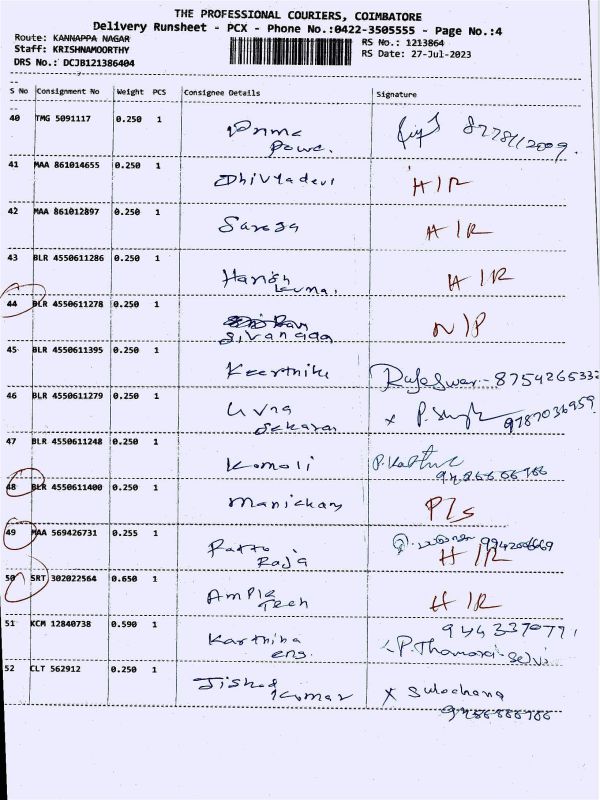 THE PROFESSIONAL COURIERS, COIMBATORE
Delivery Runsheet - PCX - Phone No.:0422-3505555 - Page No.:4
Route: KANNAPPA NAGAR
RS No.: 1213864
Staff: KRISHNAMOORTHY
RS Date: 27-Jul-2023
DRS No.: DCJB121386404
S No Consignment No Weight PCS Consignee Details Signature
40 TMG 5091117 0.250 1
41 MAA 861014655 0.250 1 Dhivyadevi H/R
42 MAA 861012897 0.250 1 Saroja H/R
43 BLR 4550611286 0.250 1 Harish Kumar H/R
44 BLR 4550611278 0.250 1 N/P
45 BLR 4550611395 0.250 1 Keerthika Rajeswari - 8754265332
46 BLR 4550611279 0.250 1 x P. Singh
47 BLR 4550611248 0.250 1 Komali
48 BLR 4550611400 0.250 1 Manickam
49 MAA 569426731 0.255 1 Raja H/R
50 SRT 302022564 0.650 1 Ample Tech H/R
51 KCM 12840738 0.590 1 Karthika eng.
52 CLT 562912 0.250 1 Kumar x Sulochana